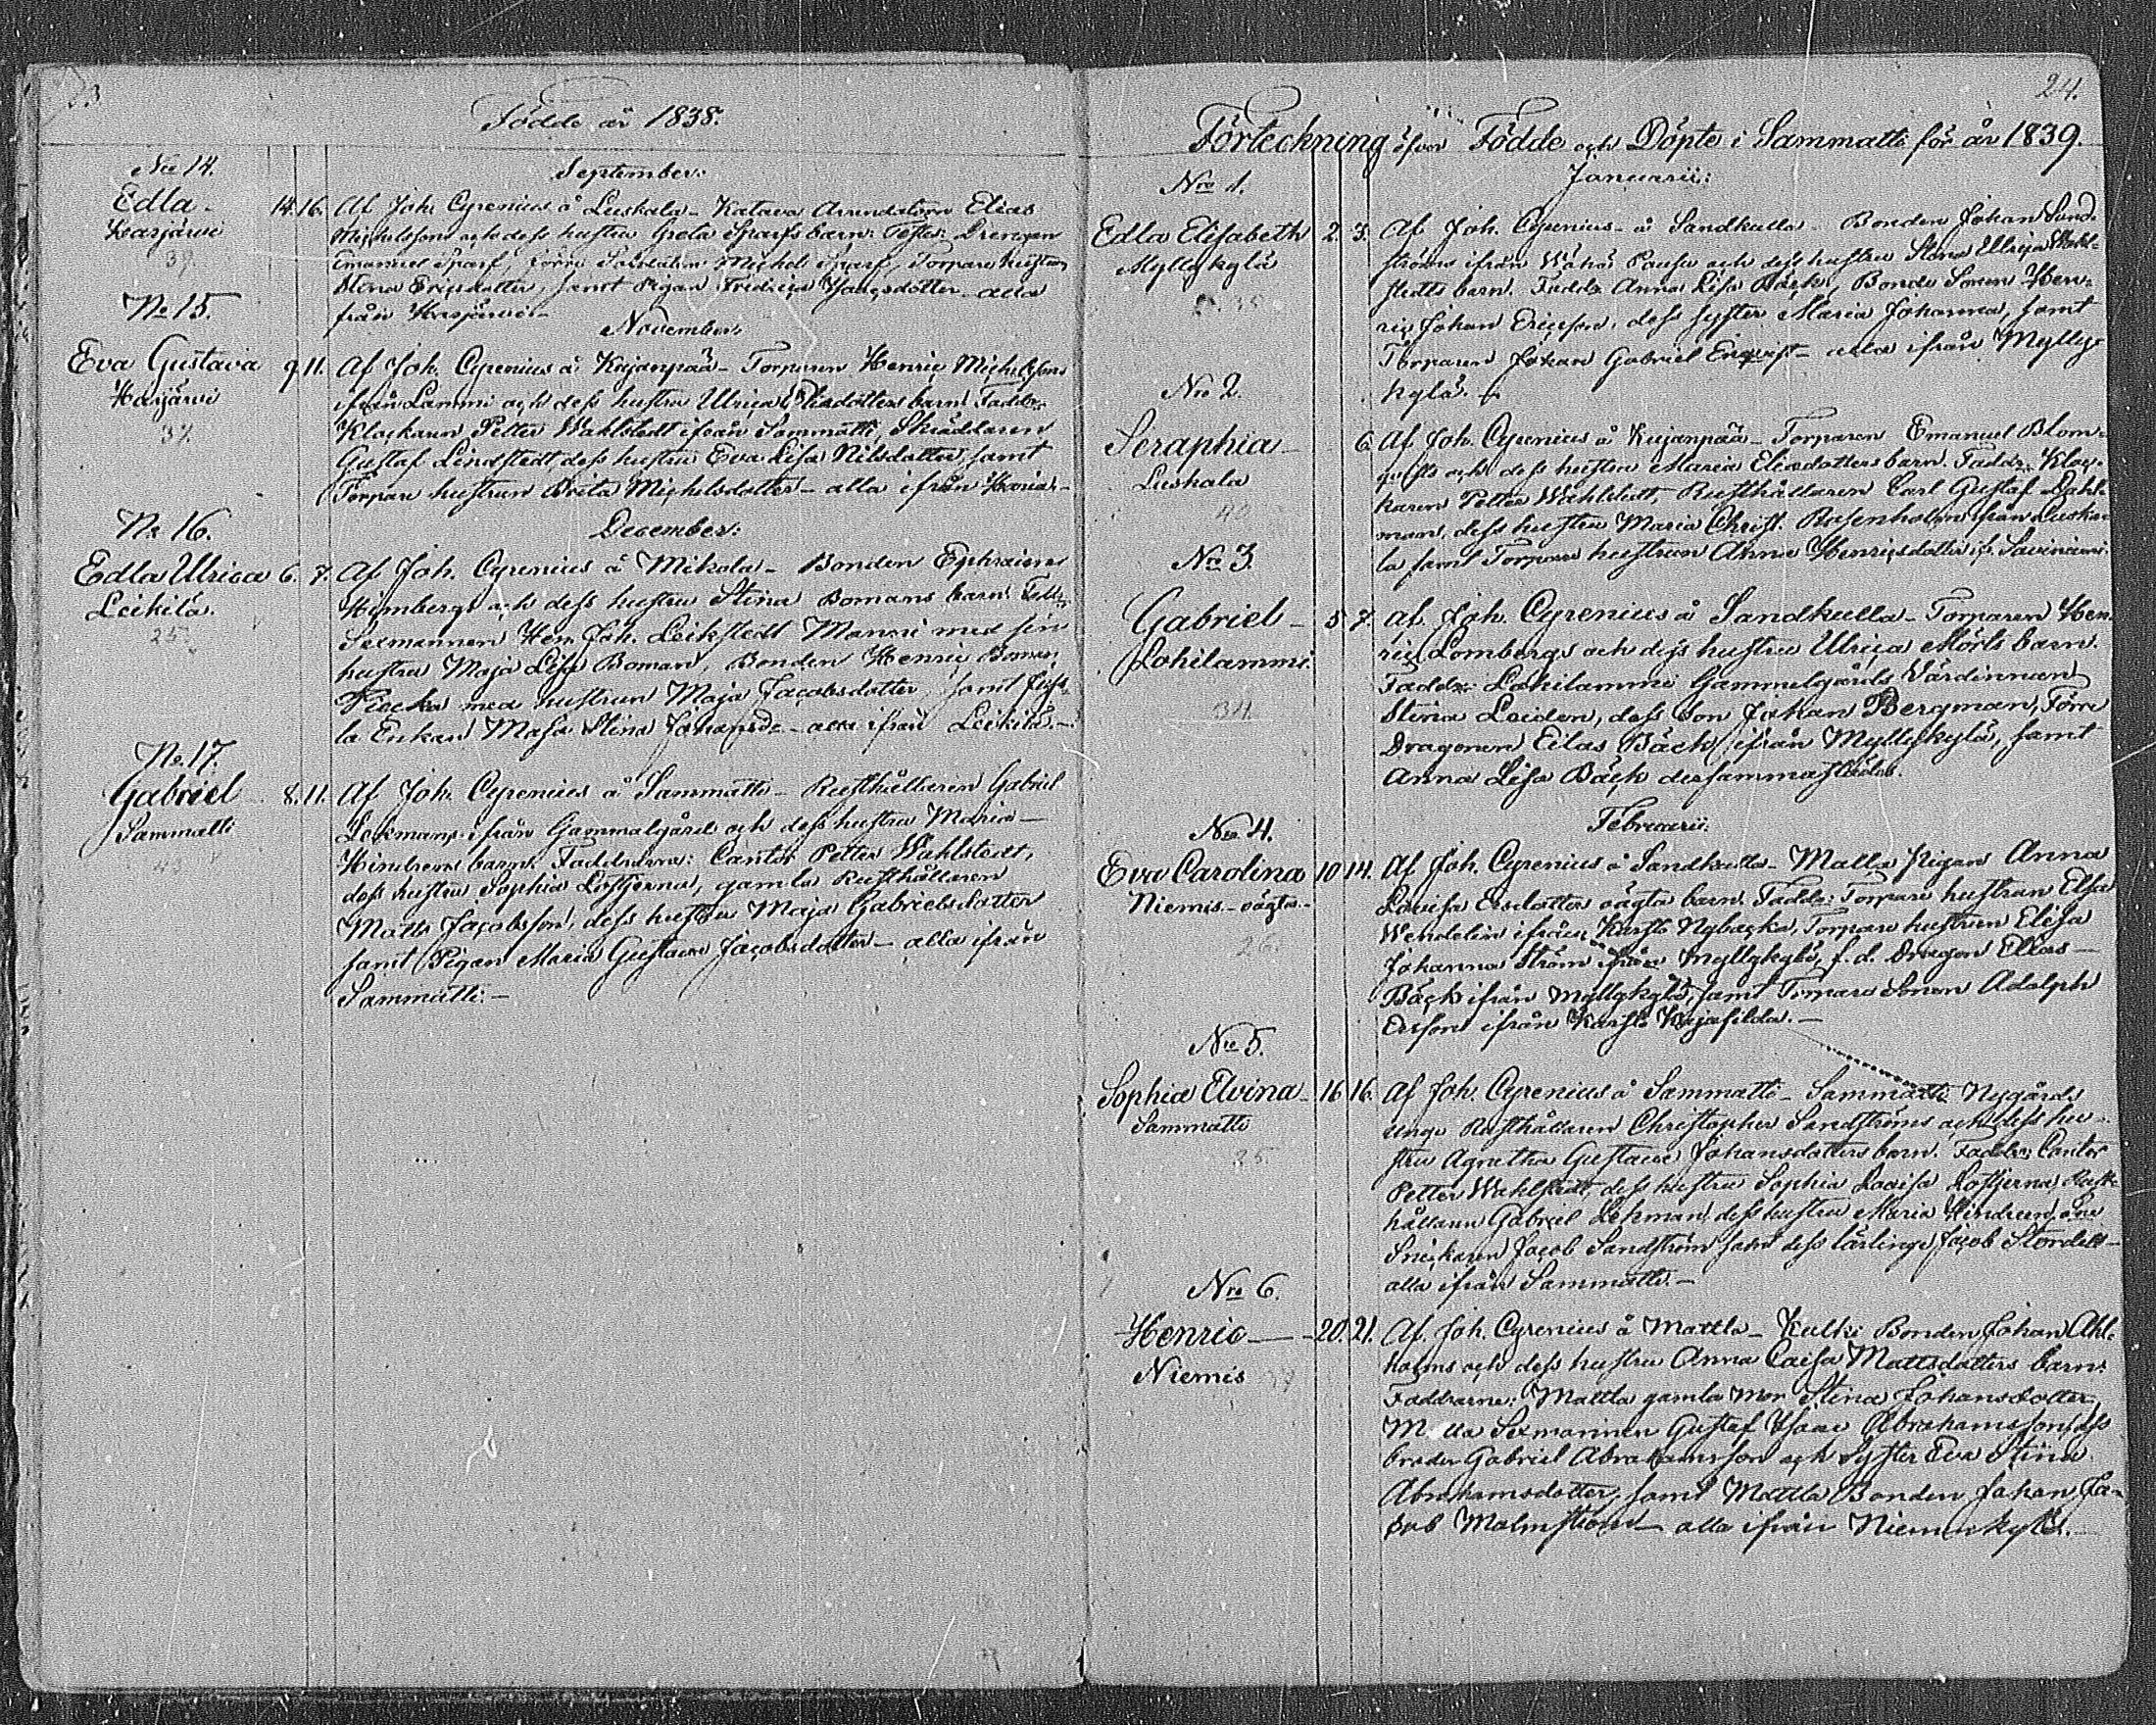 23
Födde år 1838.
September.
No 14.
Edla
Karjärvi
39
14. 16. Af Joh. Cyrenius å Luskala - Katava Arrendatorn Elias
Michelssons och dess hustru Greta Sparfs barn. Testes: Drengen
Emanuel Sparf, förre Soldaten Michel Sparf, Torpare hustrun
Stina Ericsdotter, samt Pigan Fredrica - alla
från Karjärvi -
November.
No 15.
Eva Gustava
Karjärvi
37.
9. 11. Af Joh. Cyrenius å Kujanpää - Torparen Henric Michelssons
ifrån Lammi och dess hustru Ulrica Eliedotters barn. Faddr:
Klockaren Petter Wahlstedt ifrån Sammatti, Skräddaren
Gustaf Lindstedt, dess hustru Eva Lisa Nilsdotter, samt
Torpare hustrun Brita Michelsdotter - alla ifrån
December:
No 16.
Edla Ulrica
Leikilä.
25
6. 7. Af Joh. Cyrenius å Mikola - Bonden Ephraim
Himbergs och dess hustru Stina Bomans barn.
Sexmannen Hen. Joh. Leikstedt Manni med sin
hustru Maja Lisa Boman, Bonden Henric Boman
med hustrun Maja Jacobsdotter, samt
la Enkan Maja Stina - alla ifrån Leikilä. -
No 17.
Gabriel
Sammatti
43
8. 11. Af Joh. Cyrenius å Sammatti - Rusthållaren Gabriel
Lekmans ifrån Gammalgård och dess hustru Maria -
Hindréns barn. Faddrarna: Cantor Petter Wahlstedt,
dess hustru Sophia Loftjerna, gamla Rusthållaren
Matts Jacobsson, dess hustru Maja Gabrielsdotter
samt Pigan Maria Gustava Jacobsdotter - alla ifrån
Sammatti. -
24.
Förteckning öfver Födde och Döpte i Sammatti för år 1839.
Januarii:
No 1.
Edla Elisabeth
Myllykylä
35
2. 3. Af Joh. Cyrenius - å Sandkulla - Bonden Johan Sund-
ströms ifrån Wähä Pausu och dess hustru Stina Ulrica Wahl-
stedts barn. Faddr. Anna Lisa Bäck, Bonde Sonen Hen-
ric Johan Ericsson, dess syster Maria Johanna, samt
Torparen Johan Gabriel Enqvist - alla ifrån Mylly-
kylä. -
No 2.
Seraphia
Luskala
40
6. Af Joh. Cyrenius å Kujanpää - Torparen Emanuel Blom-
qvists och dess hustru Maria Eliedotters barn. Faddr. Kloc-
karen Petter Wahlstedt, Rusthållaren Carl Gustaf Dahl-
man, dess hustru Maria Christ. Rosenholm ifrån Luska-
la samt Torpare hustrun Anna Henricsdotter ifr.
No 3.
Gabriel
Lohilammi.
34
5. 7. Af Joh. Cyrenius å Sandkulla - Torparen Hen-
ric Lombergs och dess hustru Ulrica Mörts barn.
Faddr: Lohilammi Gammelgårds Värdinnan
Stina Leiden, dess Son Johan Bergman, Förre
Dragonen Eilas Bäck ifrån Myllykylä, samt
Anna Lisa Bäck dersammastädes.
Februarii:
No 4.
Eva Carolina
Niemis - oägta -
26
10. 14. Af Joh. Cyrenius å Sandkulla - Malla Pigan Anna
Lovisa Ersdotters oägta barn. Faddr: Torpare hustrun Elsa
Wendelin ifrån Karslo Nybacka, Torpare hustrun Elisa
Johanna Ström ifrån Myllykylä, f. d. Dragon Elias -
Bäck ifrån Myllykylä, samt Torpare Sonen Adolph
Ersson ifrån Karslo -
No 5.
Sophia Elvina
Sammatti
25
16. 16. Af Joh. Cyrenius å Sammatti - Sammatti Nygårds
unge Rusthållaren Christopher Sandströms och dess hu-
stru Agnetha Gustava Johansdotters barn. Faddr: Cantor
Petter Wahlstedt, dess hustru Sophia Lovisa Loftjerna, Rust-
hållaren Gabriel Lekman, dess hustru Maria Hindrén,
Snickaren Jacob Sandström samt dess lärlinge Jacob Stordell -
alla ifrån Sammatti. -
No 6.
Henric
Niemis
20. 21. Af Joh. Cyrenius å Mattla - Kulki Bonden Johan Ahl-
holms och dess hustru Anna Caisa Mattsdotters barn.
Faddrarne: Mattla gamla Mor Stina Johansdotter,
Malla Sexmannen Gustaf Isaac Abrahamsson, dess
broder Gabriel Abrahamsson och Syster Eva Stina
Abrahamsdotter, samt Mattla Bonden Johan Ja-
cob Malmström - alla ifrån Niemenkylä. -